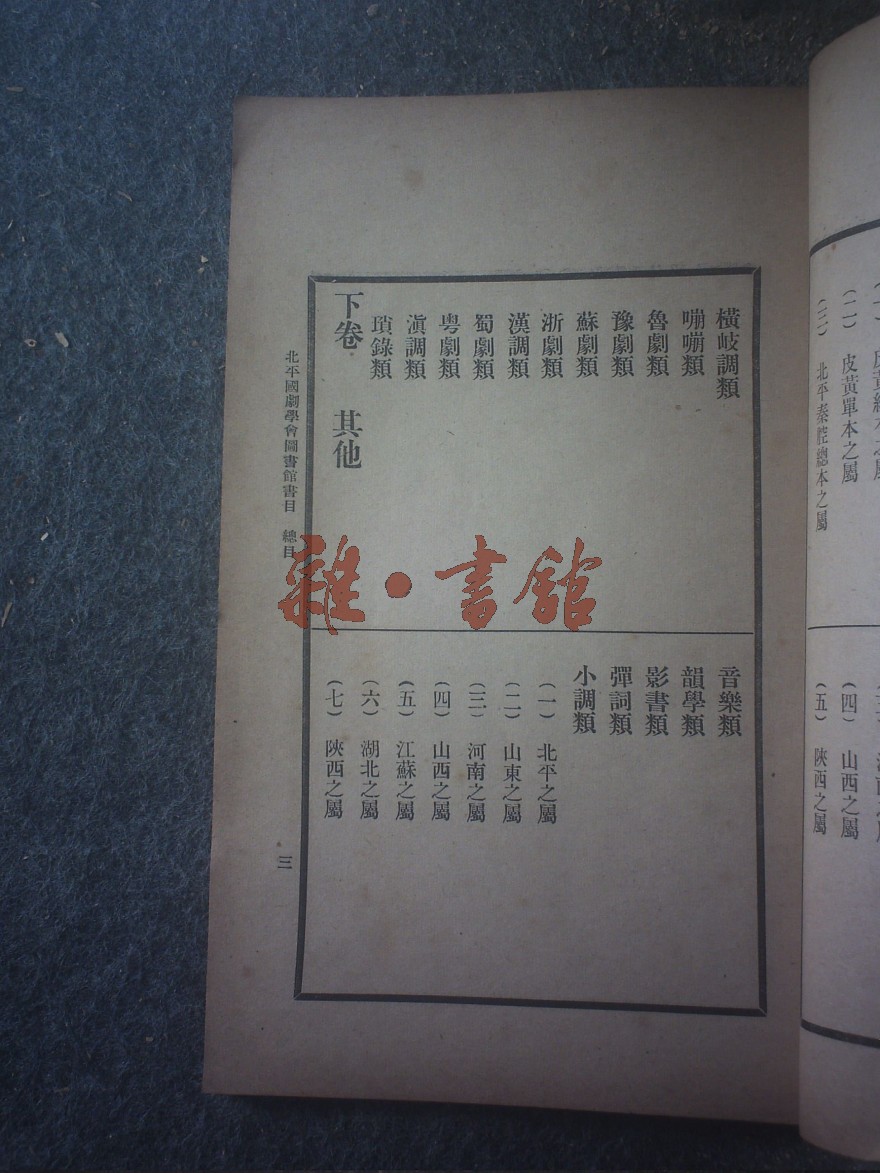 (二) 皮黃單本之屬
(三) 北平秦腔總本之屬
(四) 山西之屬
(五) 陝西之屬
橫岐調類
嘣嘣類
魯劇類
豫劇類
蘇劇類
浙劇類
漢調類
蜀劇類
粵劇類
滇調類
瑣錄類
下卷 其他
音樂類
韻學類
影書類
彈詞類
小調類
(一) 北平之屬
(二) 山東之屬
(三) 河南之屬
(四) 山西之屬
(五) 江蘇之屬
(六) 湖北之屬
(七) 陝西之屬
北平國劇學會圖書館書目 總目 三
雜·書館